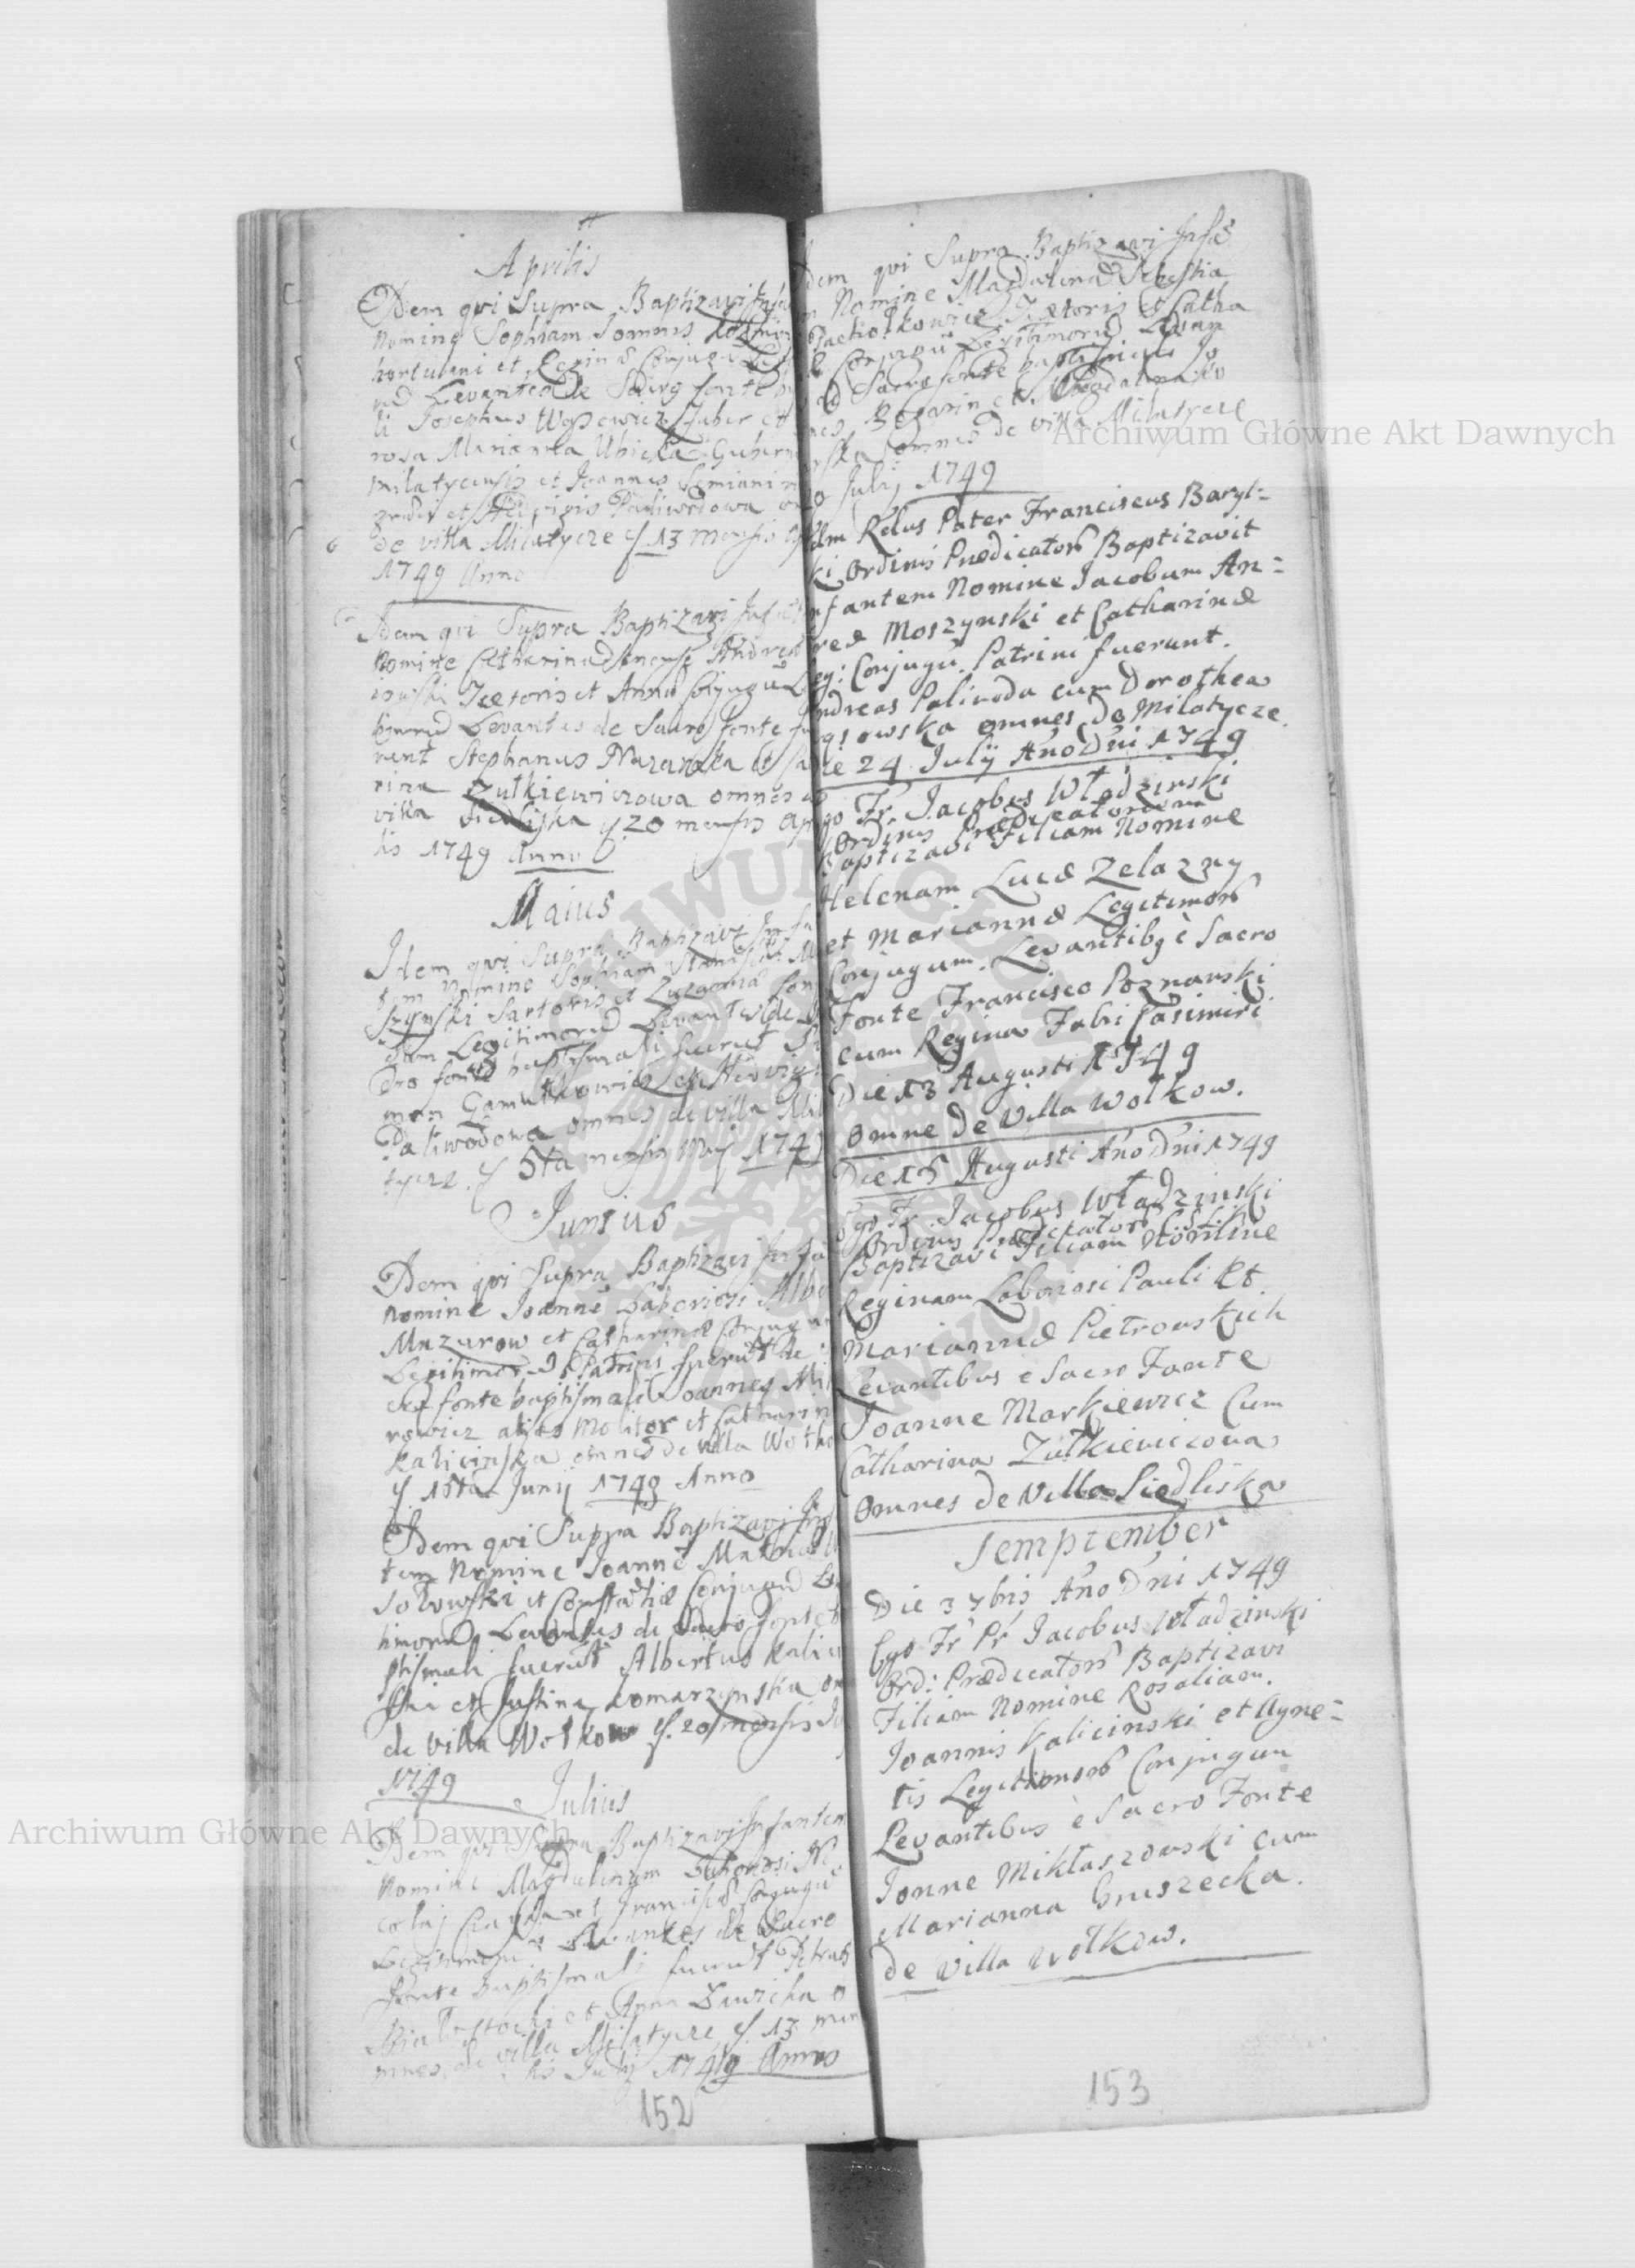 Aprilis
Idem qui Supra Baptizavi Infa
Nomine Sophiam Joannis
hortulani et Reginæ Conjugū
Levantes de Sacro fonte
li Josephus Wąsewicz Faber et
rosa Marianna Ubicka Guberna
Milatycensis et Joannes
et Hedvigis Paliwodowa
de villa Milatycze 13 mensis
1749 Anno
Idem qui Supra Baptizavi Infa
Nomine Catharinā Andreæ
Textoris et Annæ Conjugū Le
Levantes de Sacro fonte fu
runt Stephanus Mazanka et Ca
rina Zułkiewiczowa omnes
villa Siedliska 20 mensis Ap
lis 1749 Anno
Maius
Idem qui Supra Baptizavi Infa
tem Nomine Sophiam Stanislai M
szynski Sartoris et Con
Legitimorū Levantes de
cro fonte baptismali fuerūt Si
mon et Hedvigis
Paliwodowa omnes de villa Mila
tycze 5ta mensis Maij 1749
Junius
Idem qui Supra Baptizavi Infā
Nomine Joannē Laboriosi Albe
Mazurow et Catharinæ Conjugū
Legitimorū Patrini fuerūt de
cro fonte baptismali Joannes Mi
rowicz alias Molitor et Catharin
Kalicinska omnes de villa Wołko
15ta Junij 1749 Anno
Idem qui Supra Baptizavi Infā
tem Nomine Joannē Mathiæ
Sobowski et Constantiæ Conjugū Le
timorū Levantes de Sacro fonte b
ptismali fuerūt Albertus Kalici
ski et Justina Komarzynska om
de villa Wołkow 20 mensis Ju
1749
Julius
Idem qui Supra Baptizavi Infantem
Nomine Magdalenam Laboriosi Ni
colaj et Franciscæ Conjugū
Legitimorū Levantes de Sacro
Fonte Baptismali fuerūt Petrus
Białostocki et Anna o
mnes de villa Milatycze 13 men
sis Julij 1749 Anno
152
dem qui Supra Baptizavi Infā
m Nomine Magdalenā Sebestia
Textoris et Catha
Conjugū Legitimorū Levan
Sacro fonte baptismali Jo
nes et Magdalena
omnes de villa Milatycze
20 Julij 1749
Adm Relus Pater Franciscus Baryl-
ki Ordinis Prædicatorū Baptizavit
nfantem Nomine Jacobum An-
reæ Moszynski et Catharinæ
eg: Conjugū. Patrini fuerunt.
ndreas Paliwoda cum Dorothea
owska omnes de Milatycze.
ie 24 Julij Ano Dni 1749
go Fr. Jacobus Władzinski
Ordinis Prædicatorum
Baptizavi Filiam Nomine
Helenam Lucæ Zelazny
et Mariannæ Legitimorū
Conjugum. Levantibq è Sacro
Fonte Francisco Poznanski
cum Regina Fabri Casimiri
Die 13 Augusti 1749
Omne de Villa Wołkow.
Die 15 Augusti Ano Dni 1749
Ego Fr. Jacobus Władzinski
Ordinis Prædicatorū C.S.L.
Baptizavi Filiam Nomine
Reginam Laboriosi Pauli et
Mariannæ Pietrowskich
Levantibus e Sacro Fonte
Joanne Markiewicz Cum
Catharina Zułkiewiczowa
Omnes de Villa Siedliska
Semptember
Die 3 7bris Ano Dni 1749
Ego Fr Pr Jacobus Władzinski
Ord: Prædicatorū Baptizavi
Filiam Nomine Rosaliam.
Joannis Kalicinski et Agne-
tis Legitimorū Conjugum
Levantibus è Sacro Fonte
Jonne Mikłaszowski cum
Marianna Gruszecka.
de Villa Wołkow.
153
Archiwum Główne Akt Dawnych
Archiwum Główne Akt Dawnych